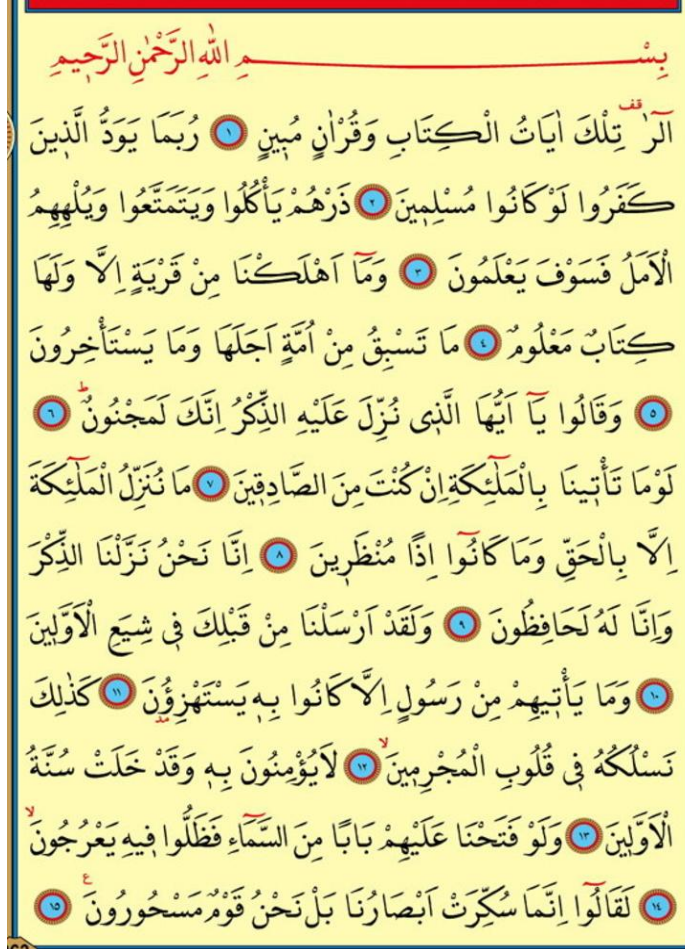 بِسْمِ اللّٰهِ الرَّحْمٰنِ الرَّحٖيمِ
الٓرٰ ࣞ تِلْكَ اٰيَاتُ الْكِتَابِ وَقُرْاٰنٍ مُبٖينٍ ١ رُبَمَا يَوَدُّ الَّذٖينَ
كَفَرُوا لَوْ كَانُوا مُسْلِمٖينَ ٢ ذَرْهُمْ يَأْكُلُوا وَيَتَمَتَّعُوا وَيُلْهِهِمُ
الْاَمَلُ فَسَوْفَ يَعْلَمُونَ ٣ وَمَٓا اَهْلَكْنَا مِنْ قَرْيَةٍ اِلَّا وَلَهَا
كِتَابٌ مَعْلُومٌ ٤ مَا تَسْبِقُ مِنْ اُمَّةٍ اَجَلَهَا وَمَا يَسْتَأْخِرُونَ
٥ وَقَالُوا يَٓا اَيُّهَا الَّذٖى نُزِّلَ عَلَيْهِ الذِّكْرُ اِنَّكَ لَمَجْنُونٌؕ ٦
لَوْمَا تَأْتٖينَا بِالْمَلٰٓئِكَةِ اِنْ كُنْتَ مِنَ الصَّادِقٖينَ ٧ مَا نُنَزِّلُ الْمَلٰٓئِكَةَ
اِلَّا بِالْحَقِّ وَمَا كَانُٓوا اِذًا مُنْظَرٖينَ ٨ اِنَّا نَحْنُ نَزَّلْنَا الذِّكْرَ
وَاِنَّا لَهُ لَحَافِظُونَ ٩ وَلَقَدْ اَرْسَلْنَا مِنْ قَبْلِكَ فٖى شِيَعِ الْاَوَّلٖينَ
١٠ وَمَا يَأْتٖيهِمْ مِنْ رَسُولٍ اِلَّا كَانُوا بِهٖ يَسْتَهْزِؤُنَ ١١ كَذٰلِكَ
نَسْلُكُهُ فٖى قُلُوبِ الْمُجْرِمٖينَۙ ١٢ لَا يُؤْمِنُونَ بِهٖ وَقَدْ خَلَتْ سُنَّةُ
الْاَوَّلٖينَ ١٣ وَلَوْ فَتَحْنَا عَلَيْهِمْ بَابًا مِنَ السَّمَٓاءِ فَظَلُّوا فٖيهِ يَعْرُجُونَۙ
١٤ لَقَالُٓوا اِنَّمَا سُكِّرَتْ اَبْصَارُنَا بَلْ نَحْنُ قَوْمٌ مَسْحُورُونَ ع ١٥